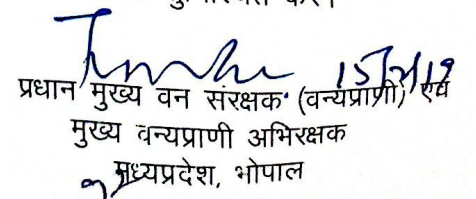 15/7/19
प्रधान मुख्य वन संरक्षक (वन्यप्राणी) एवं
मुख्य वन्यप्राणी अभिरक्षक
मध्यप्रदेश, भोपाल